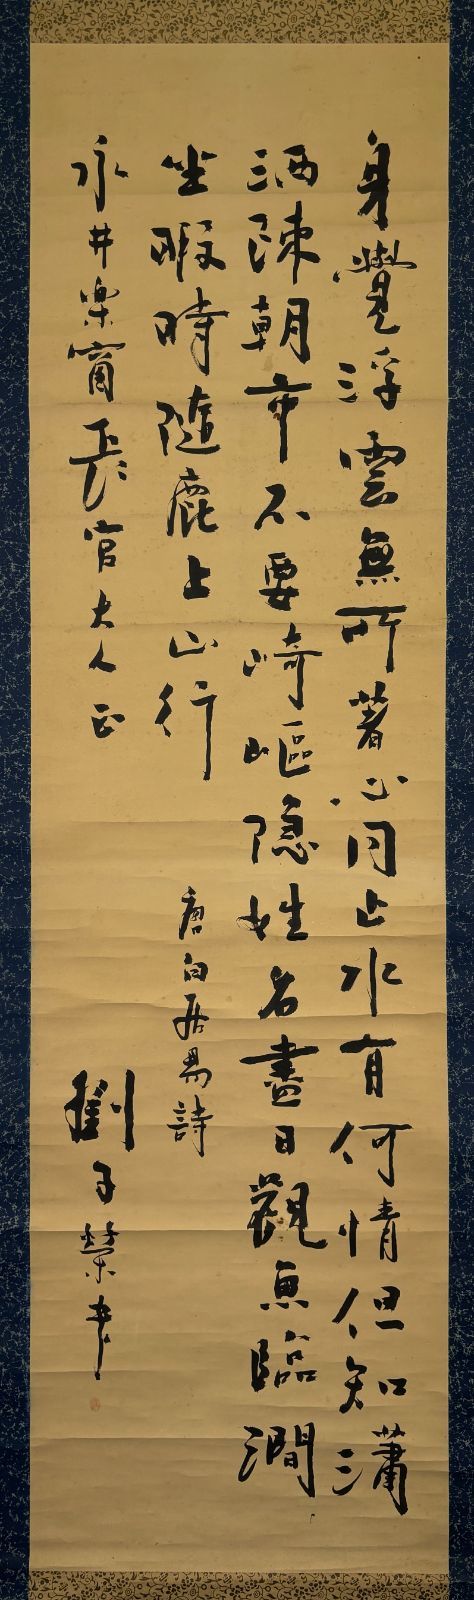 身覺浮雲無所著心同止水有何情但知瀟
洒疎朝市不要崎嶇隠姓名盡日觀魚臨澗
坐暇時随鹿上山行
唐白居易詩
永井樂甯長官大人正
劉子榮書